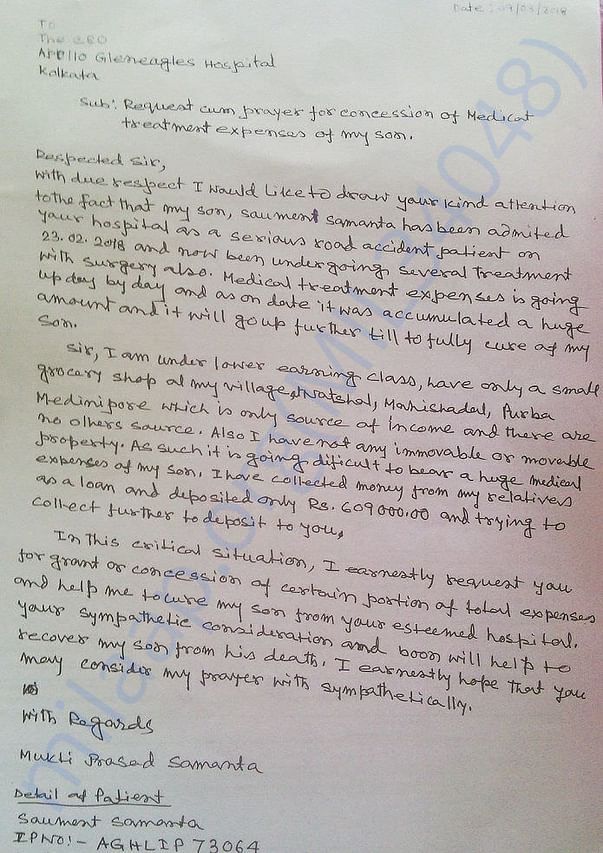 Date: 09/03/2018
To
The CEO
Apollo Gleneagles Hospital
Kolkata
Sub: Request cum prayer for concession of Medical
treatment expenses of my son.
Respected Sir,
With due respect I would like to draw your kind attention
to the fact that my son, Saument Samanta has been admited
your hospital as a serious road accident patient on
23.02.2018 and now been undergoing several treatment
with surgery also. Medical treatment expenses is going
up day by day and as on date it was accumulated a huge
amount and it will go up further till to fully cure of my
son.
Sir, I am under lower earning class, have only a small
grocery shop at my village, Natshal, Mahishadal, Purba
Medinipore which is only source of income and there are
no others source. Also I have not any immovable or movable
property. As such it is going dificult to bear a huge medical
expenses of my son. I have collected money from my relatives
as a loan and deposited only Rs. 609000.00 and trying to
collect further to deposit to you,
In this critical situation, I earnestly request you
for grant or concession of certain portion of total expenses
and help me to cure my son from your esteemed hospital.
your sympathetic consideration and boon will help to
recover my son from his death. I earnestly hope that you
may consider my prayer with sympathetically.
With Regards
Mukti Prasad Samanta
Detail of Patient
Saument Samanta
IP NO:- AGHLIP 73064